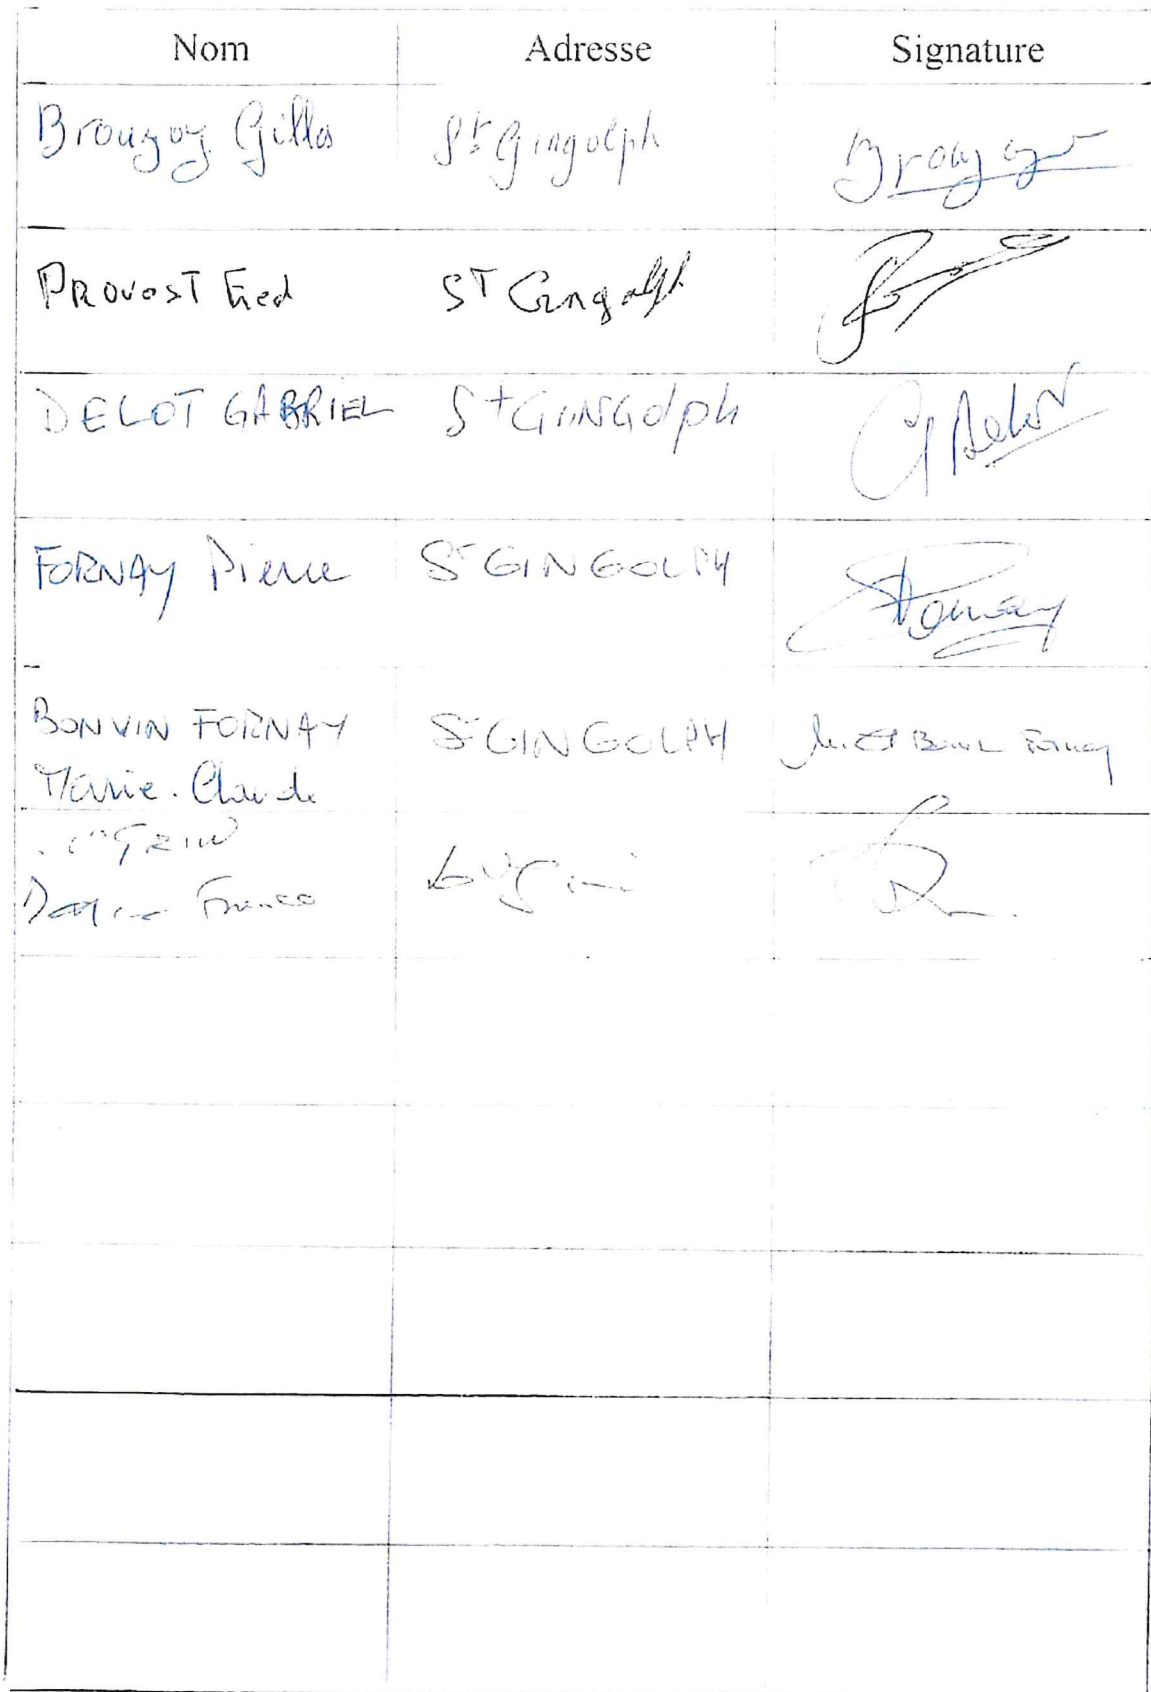 Nom Adresse Signature
Brouzoy Gilles St Gingolph Brouzoy
PROVOST Fred ST Gingolph
DELOT GABRIEL St GINGOLPH G Delot
FORNAY Pierre St GINGOLPH Fornay
BONVIN FORNAY St GINGOLPH
Marie-Claude